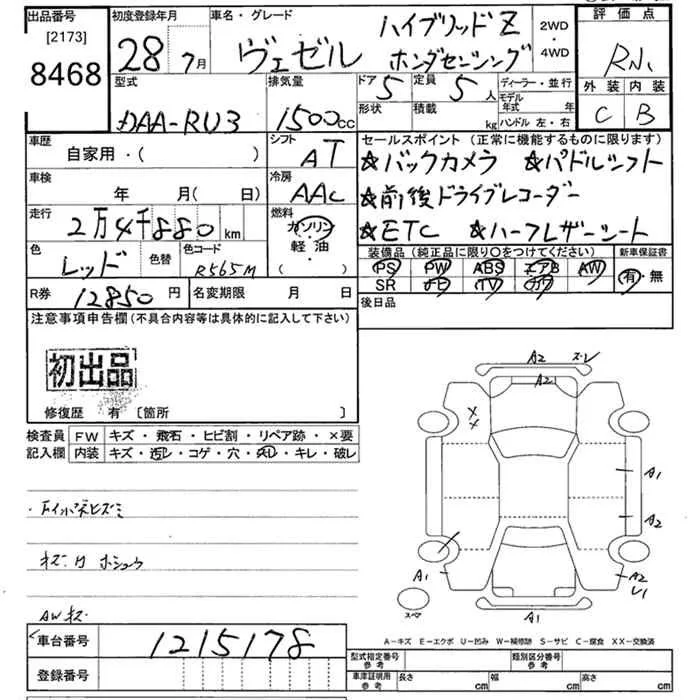 出品番号 [2173] 8468
初度登録年月 28年 7月
車名・グレード ヴェゼル ハイブリッドZ ホンダセンシング
2WD・4WD
評価点 R
外装 C 内装 B
型式 DAA-RU3
排気量 1500cc
ドア 5 定員 5人
形状 積載 kg
ディーラー・並行
モデル年式 年
ハンドル 左・右
車歴 自家用・( )
シフト AT
セールスポイント (正常に機能するものに限ります)
☆バックカメラ ☆パドルシフト
☆前後ドライブレコーダー
☆ETC ☆ハーフレザーシート
車検 年 月( 日)
冷房 AAC
走行 2万4千880 km
燃料 ガソリン 軽油 ( ・ )
色 レッド 色替 色コード R565M
装備品 (純正品に限り○をつけてください) 新車保証書
PS PW ABS エアB AW 有・無
SR ナビ TV カワ
R券 12850円 名変期限 月 日
後日品
注意事項申告欄 (不具合内容等は具体的に記入して下さい)
初出品
修復歴 有 [箇所 ]
検査員 FW キズ・飛石・ヒビ割・リペア跡・×要
記入欄 内装 キズ・汚レ・コゲ・穴・スレ・キレ・破レ
AWキズ
車台番号 1215178
登録番号
A2 スレ
A2
A1
A2
A1
A2
A1
スペア
A-キズ E-エクボ U-凹み W-補修跡 S-サビ C-腐食 XX-交換済
型式指定番号 参考 類別区分番号 参考
車庫証明用 参考 長さ cm 幅 cm 高さ cm